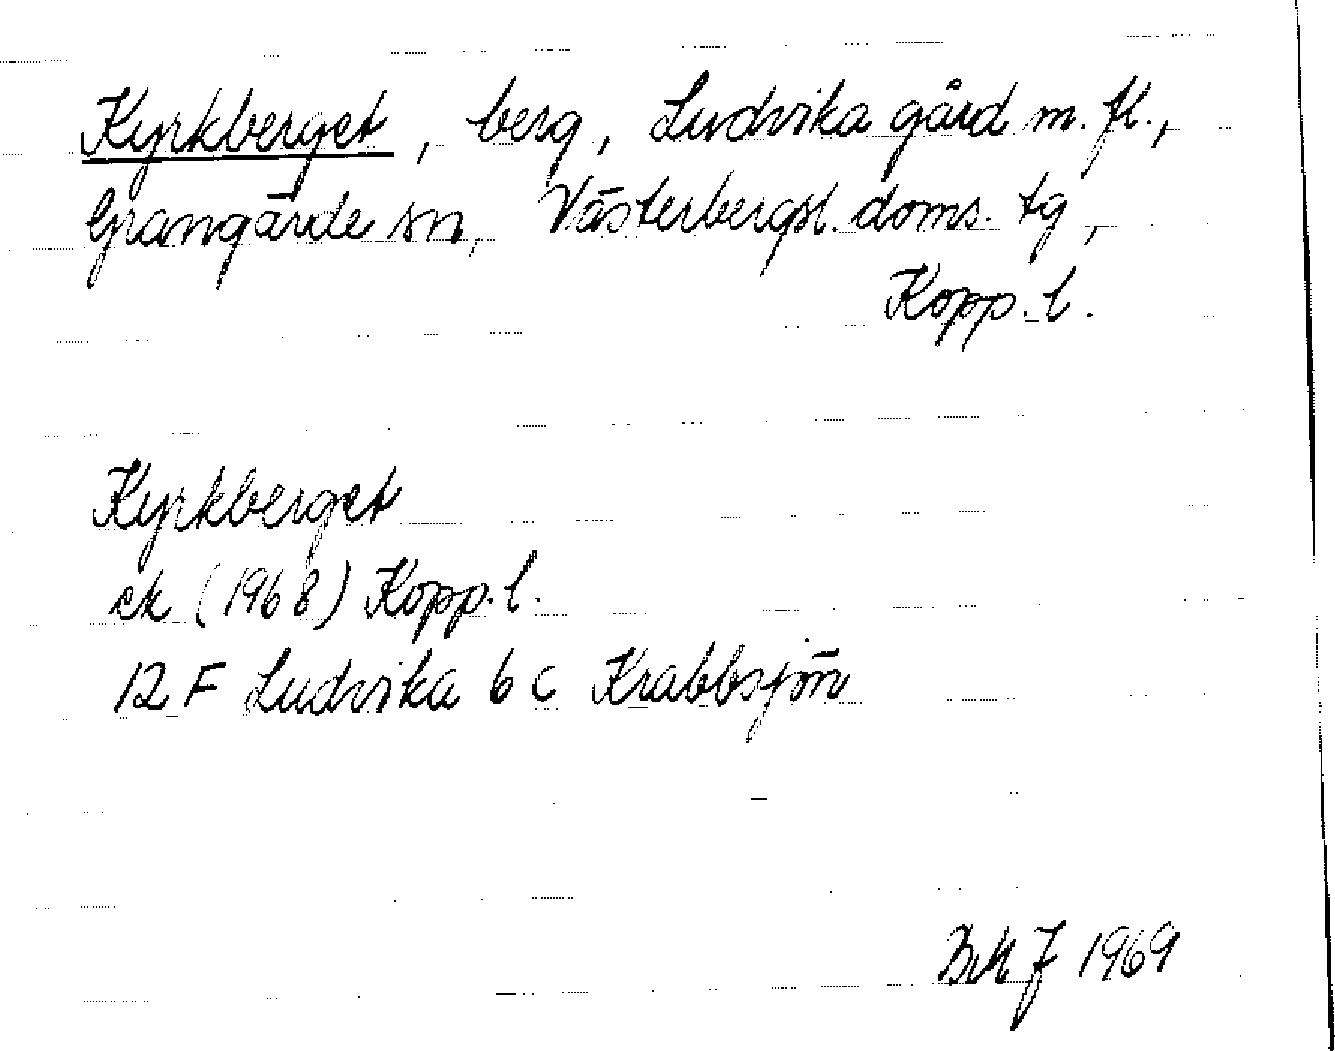 Kyrkberget, berg, Ludvika gård m. fl.,
Grangärde sn, Västerbergsl. doms. tg,
Kopp. l.
Kyrkberget
ek (1968) Kopp. l.
12 F Ludvika 6 c Krabbsjön
BMJ 1969